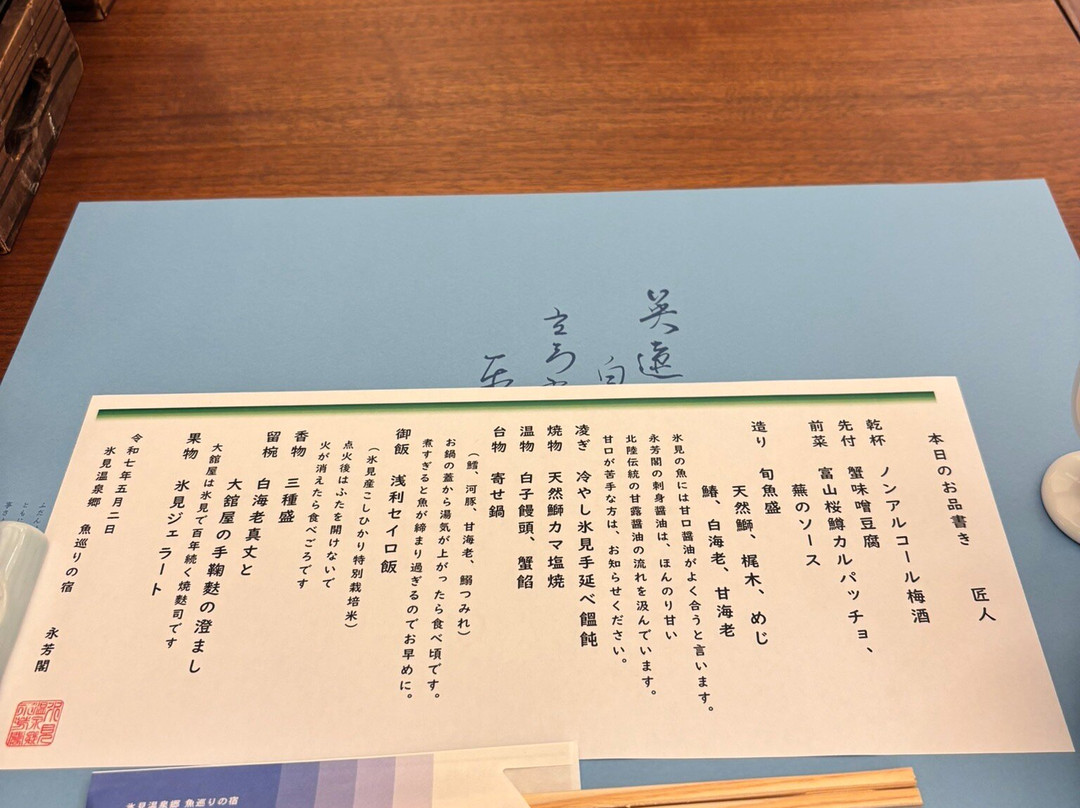 本日のお品書き　匠人
乾杯　ノンアルコール梅酒
先付　蟹味噌豆腐
前菜　富山桜鱒カルパッチョ、
蕪のソース
造り　旬魚盛
天然鰤、梶木、めじ
鰆、白海老、甘海老
氷見の魚には甘口醤油がよく合うと言います。
永芳閣の刺身醤油は、ほんのり甘い
北陸伝統の甘露醤油の流れを汲んでいます。
甘口が苦手な方は、お知らせください。
凌ぎ　冷やし氷見手延べ饂飩
焼物　天然鰤カマ塩焼
温物　白子饅頭、蟹餡
台物　寄せ鍋
（鱈、河豚、甘海老、鰯つみれ）
お鍋の蓋から湯気が上がったら食べ頃です。
煮すぎると魚が締まり過ぎるのでお早めに。
御飯　浅利セイロ飯
（氷見産こしひかり特別栽培米）
点火後はふたを開けないで
火が消えたら食べごろです
香物　三種盛
留椀　白海老真丈と
大舘屋の手鞠麩の澄まし
大舘屋は氷見で百年続く焼麩司です
果物　氷見ジェラート
令和七年五月二日
氷見温泉郷　魚巡りの宿　永芳閣
氷見温泉郷 魚巡りの宿